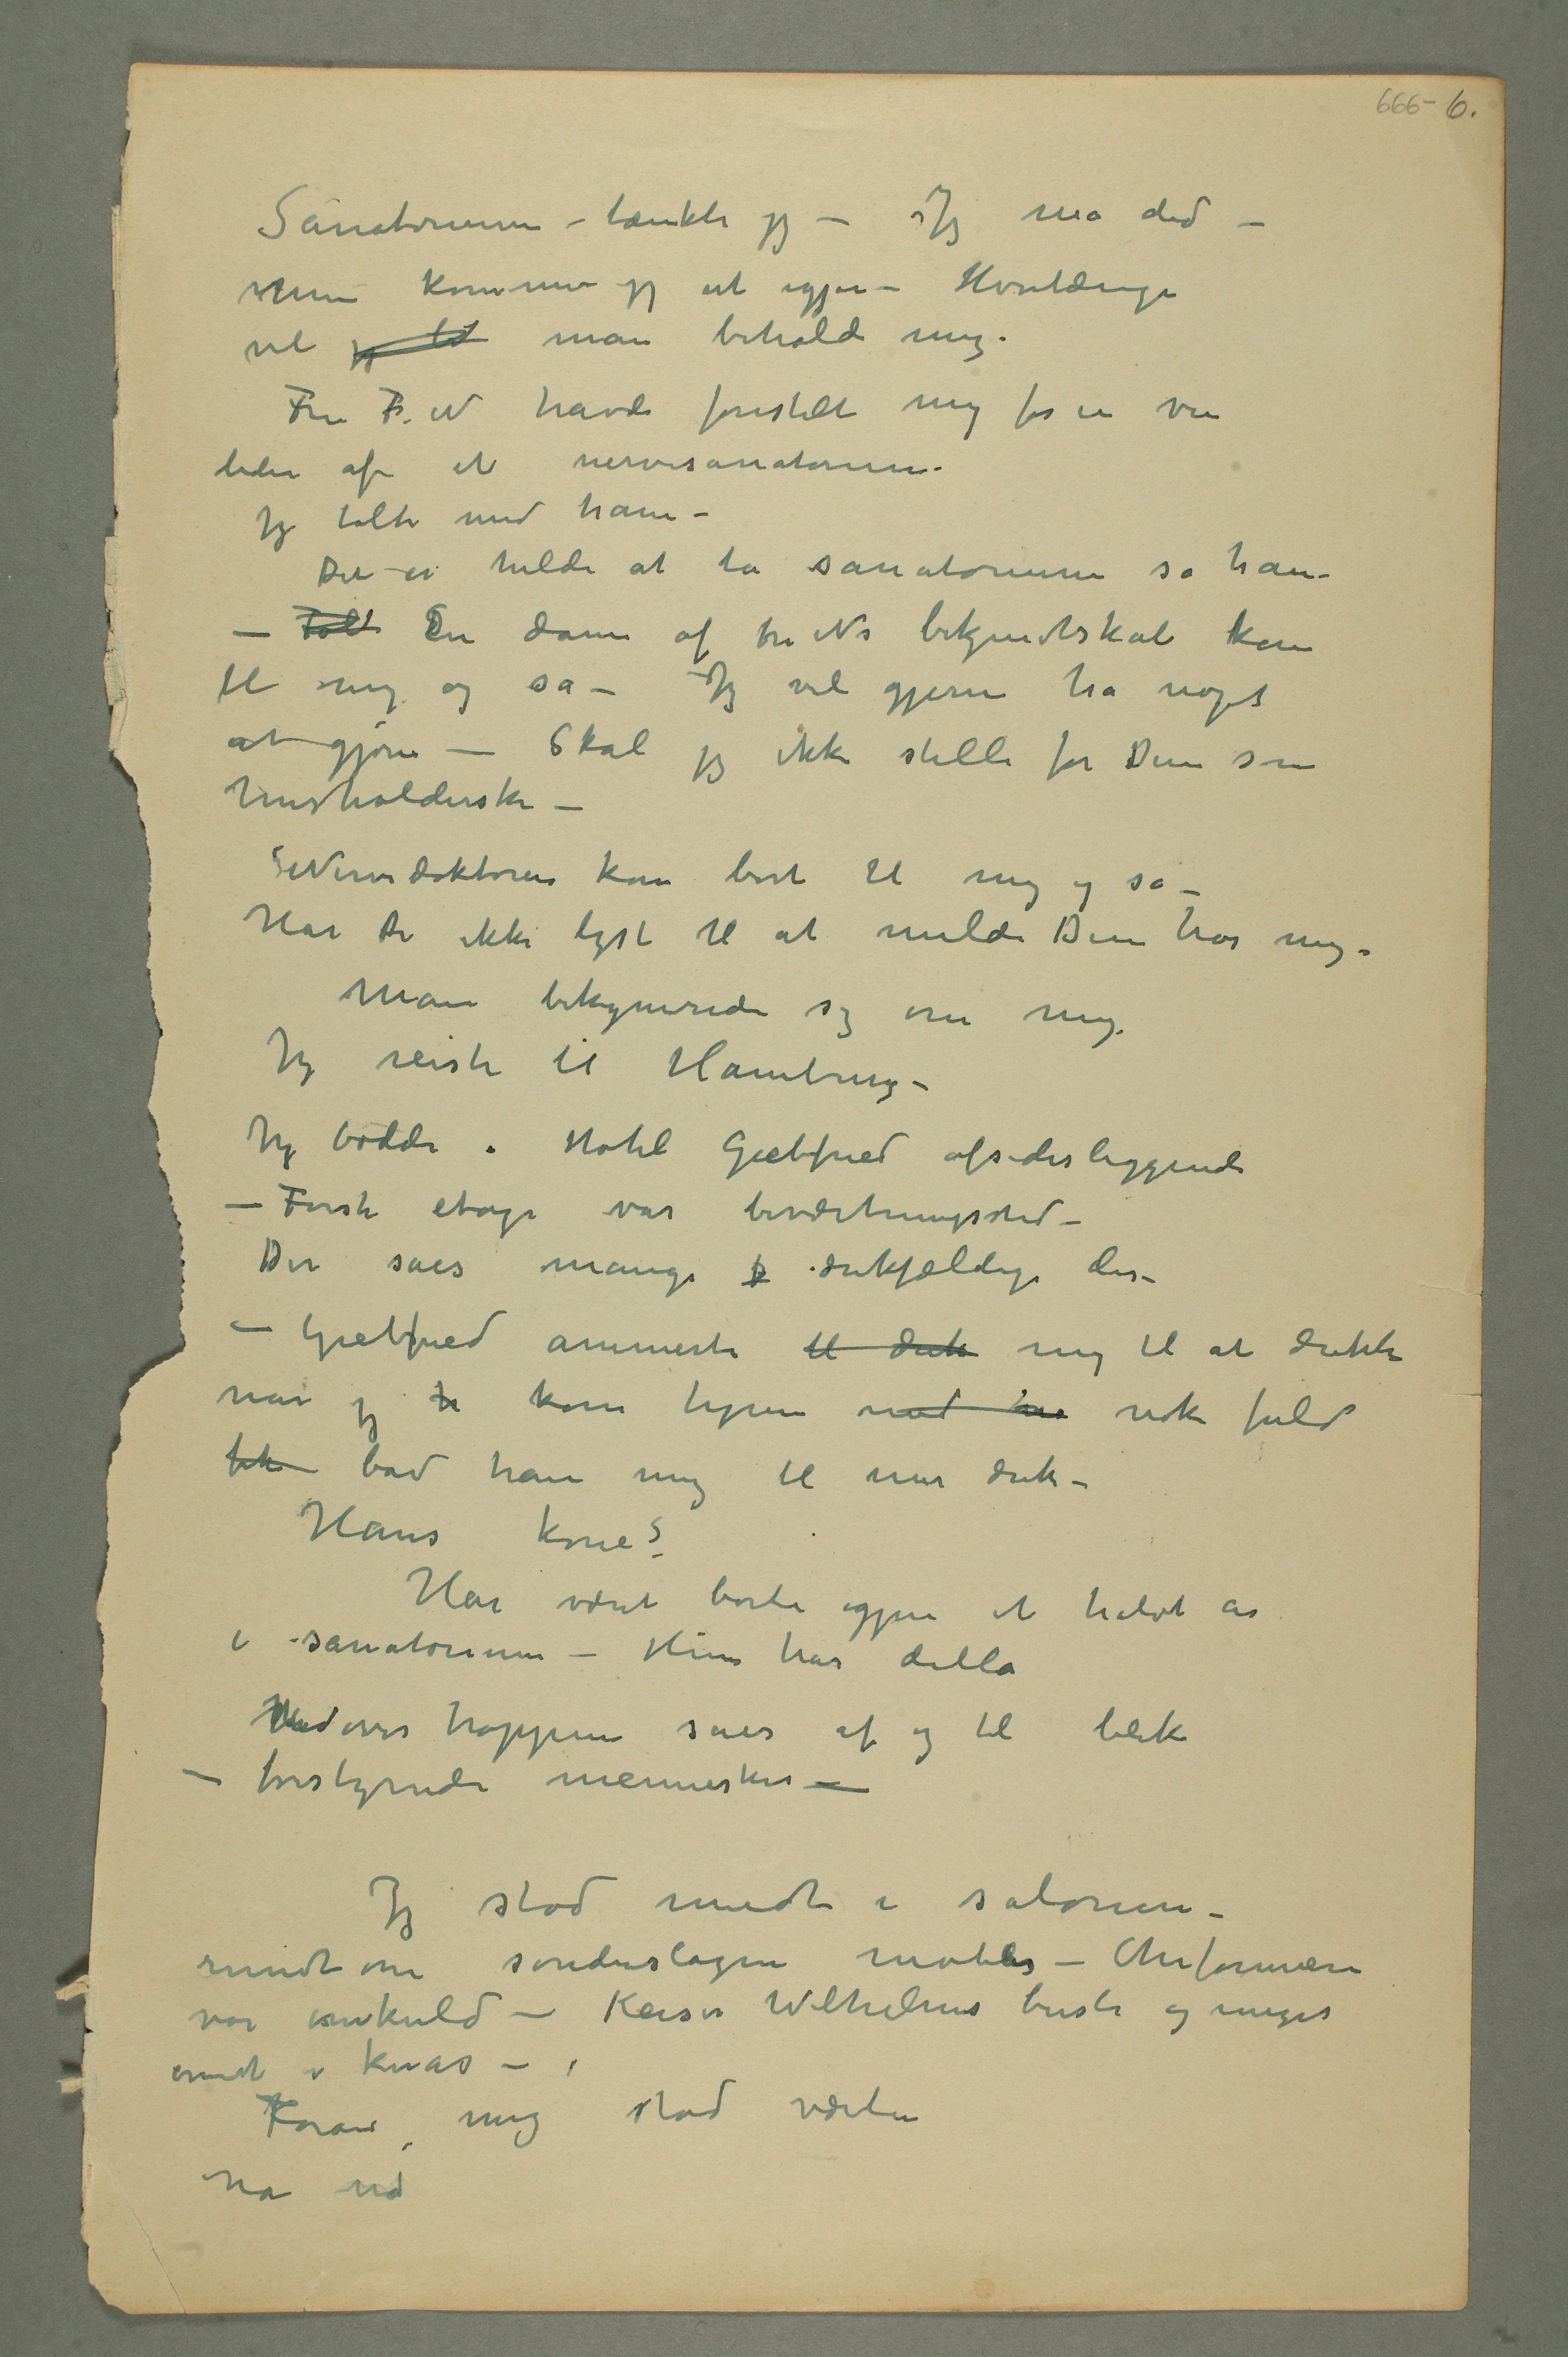 666-6.
Sanatorium – tænkte jeg – Jeg må did –
Men kommer jeg ut igjen – Hvorlænge
vil jeg man beholde mig.
Fru F. N havde forestilt mig for en ven
leder af et nervesanatorium.
Jeg talte med ham –
Det er heldi at ha sanatorium sa han –
– Talt En dame af fru Ns bekjendtskab kom
til mig og sa – Jeg vil gjerne ha noget
at gjøre – Skal jeg ikke stelle for Dem som
husholderske –
Nervedoktoren kom bort til mig og sa –
Har De ikke lyst til at melde Dem hos mig.
Man bekymrede sig om mig.
Jeg reiste til Hamburg –
Jeg bodde i Hotel Giebfried afsidesliggende
– Første etage var beværtningssted –
Der saes mange drikfældige der –
– Giebfried animerte til drik mig til at drikke
når jeg kom hjem nok fuld
fik bad han mig til mer drik –
Hans kone?
Har været borte igjen et halvt år
i sanatorium – Hun har dilla
Nedover trappen saes af og til bleke
– forstyrrede mennesker –
Jeg stod midt i salonen –
rundt om sønderslagne møbler – Chifonieren
var omkuld – Keiser Wilhelms byste og meget
andet i knas –
Foran mig stod værten
na nå